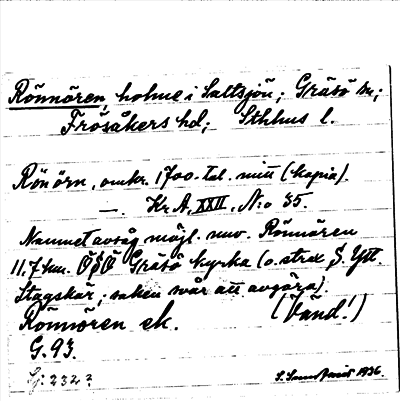 Rönnören, holme i Saltsjön; Gräsö sn;
Frösåkers hd; Sthlms l.
Rönörn, omkr. 1700-tal. mitt (kopia).
—. Kr. A, XXII, N:o 35.
Namnet avsåg möjl. nuv. Rönnören
11.7 km. ÖSÖ Gräsö kyrka (o. strax S. Ytt.
Stagskär; saken svår att avgöra).
Rönnören ek. (Vänd!)
G. 93.
Lj: 232 ?
1936.